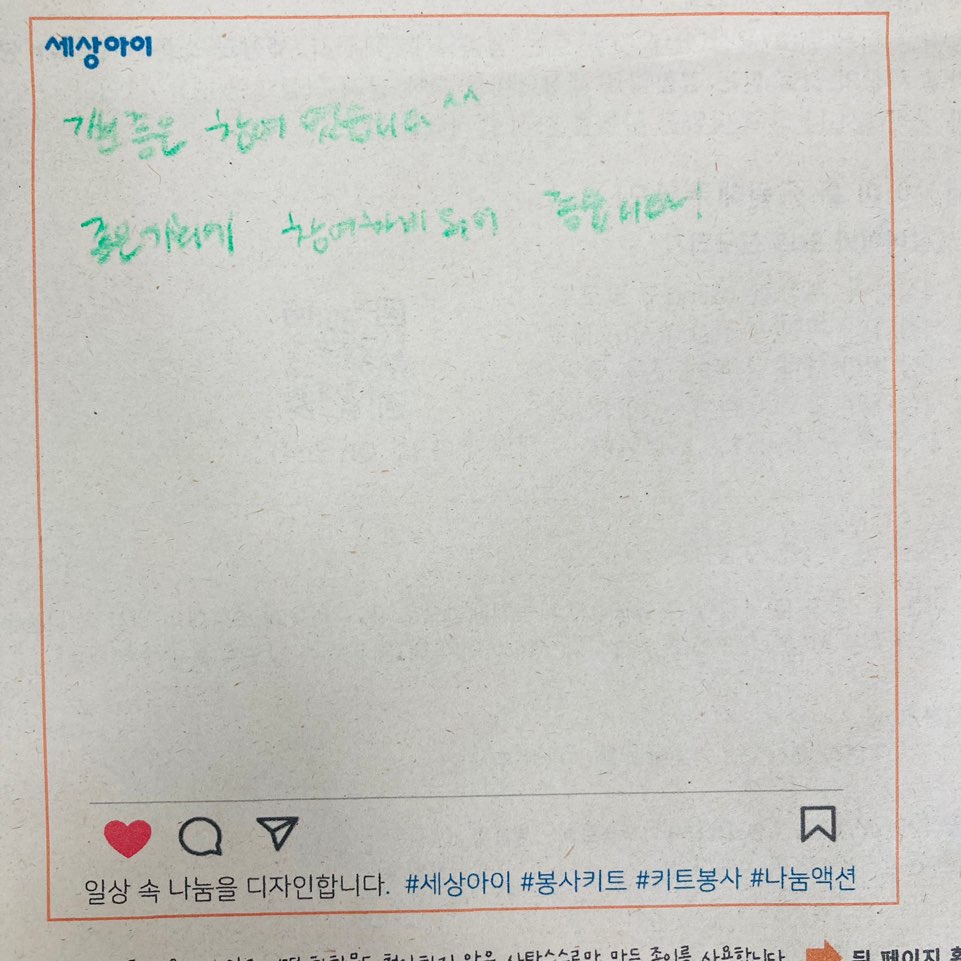 세상아이
기분 좋은 참여 였습니다^^
좋은기회에 참여하게 되어 좋습니다!
일상 속 나눔을 디자인합니다. #세상아이 #봉사키트 #키트봉사 #나눔액션
않은 사탕수수로만 만든 종이를 사용합니다
뒷 페이지